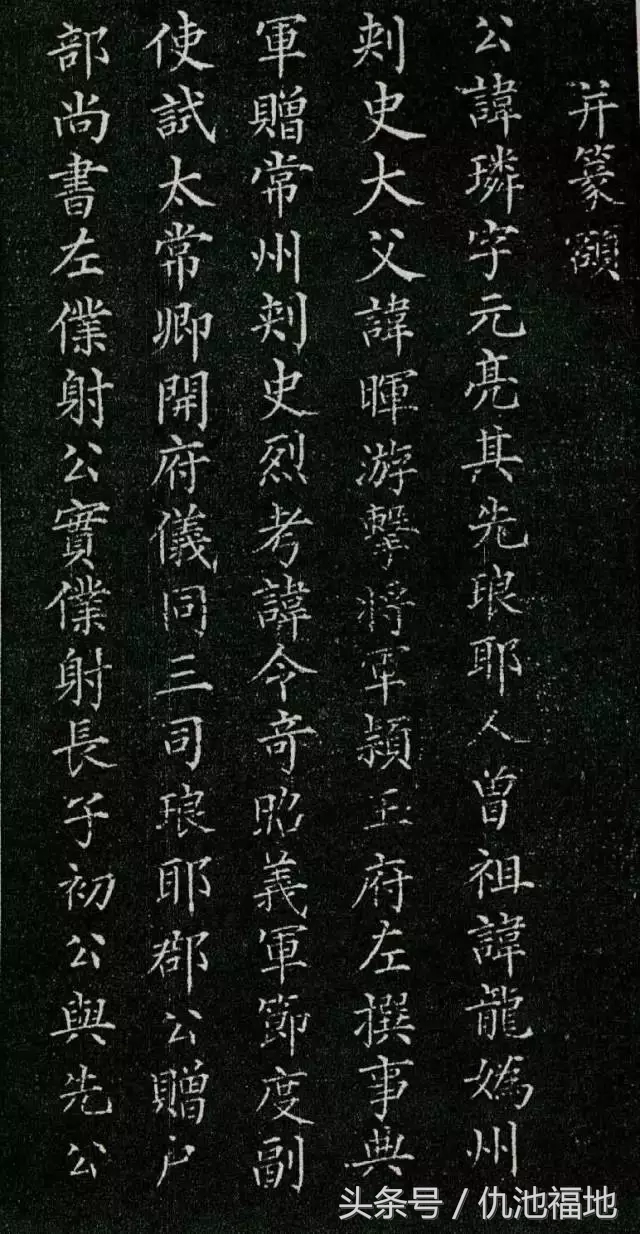 并篆額
公諱璘字元亮其先琅耶人曾祖諱龍媯州
刾史大父諱暉游擊將軍潁王府左撰事典
軍贈常州刾史烈考諱令奇昭義軍節度副
使試太常卿開府儀同三司琅耶郡公贈户
部尚書左僕射公實僕射長子初公與先公
头条号 / 仇池福地